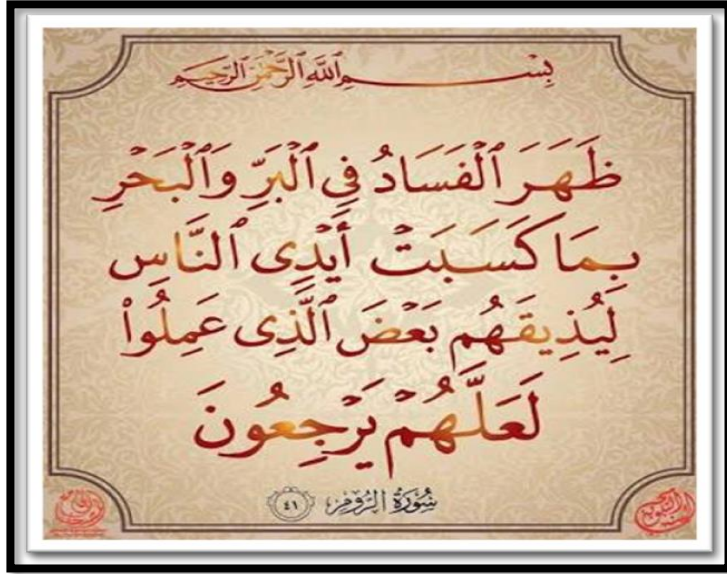 بِسْمِ ٱللَّهِ ٱلرَّحْمَٰنِ ٱلرَّحِيمِ
ظَهَرَ ٱلْفَسَادُ فِى ٱلْبَرِّ وَٱلْبَحْرِ
بِمَا كَسَبَتْ أَيْدِى ٱلنَّاسِ
لِيُذِيقَهُم بَعْضَ ٱلَّذِى عَمِلُوا۟
لَعَلَّهُمْ يَرْجِعُونَ
سُورَةُ الرُّومِ ٤١